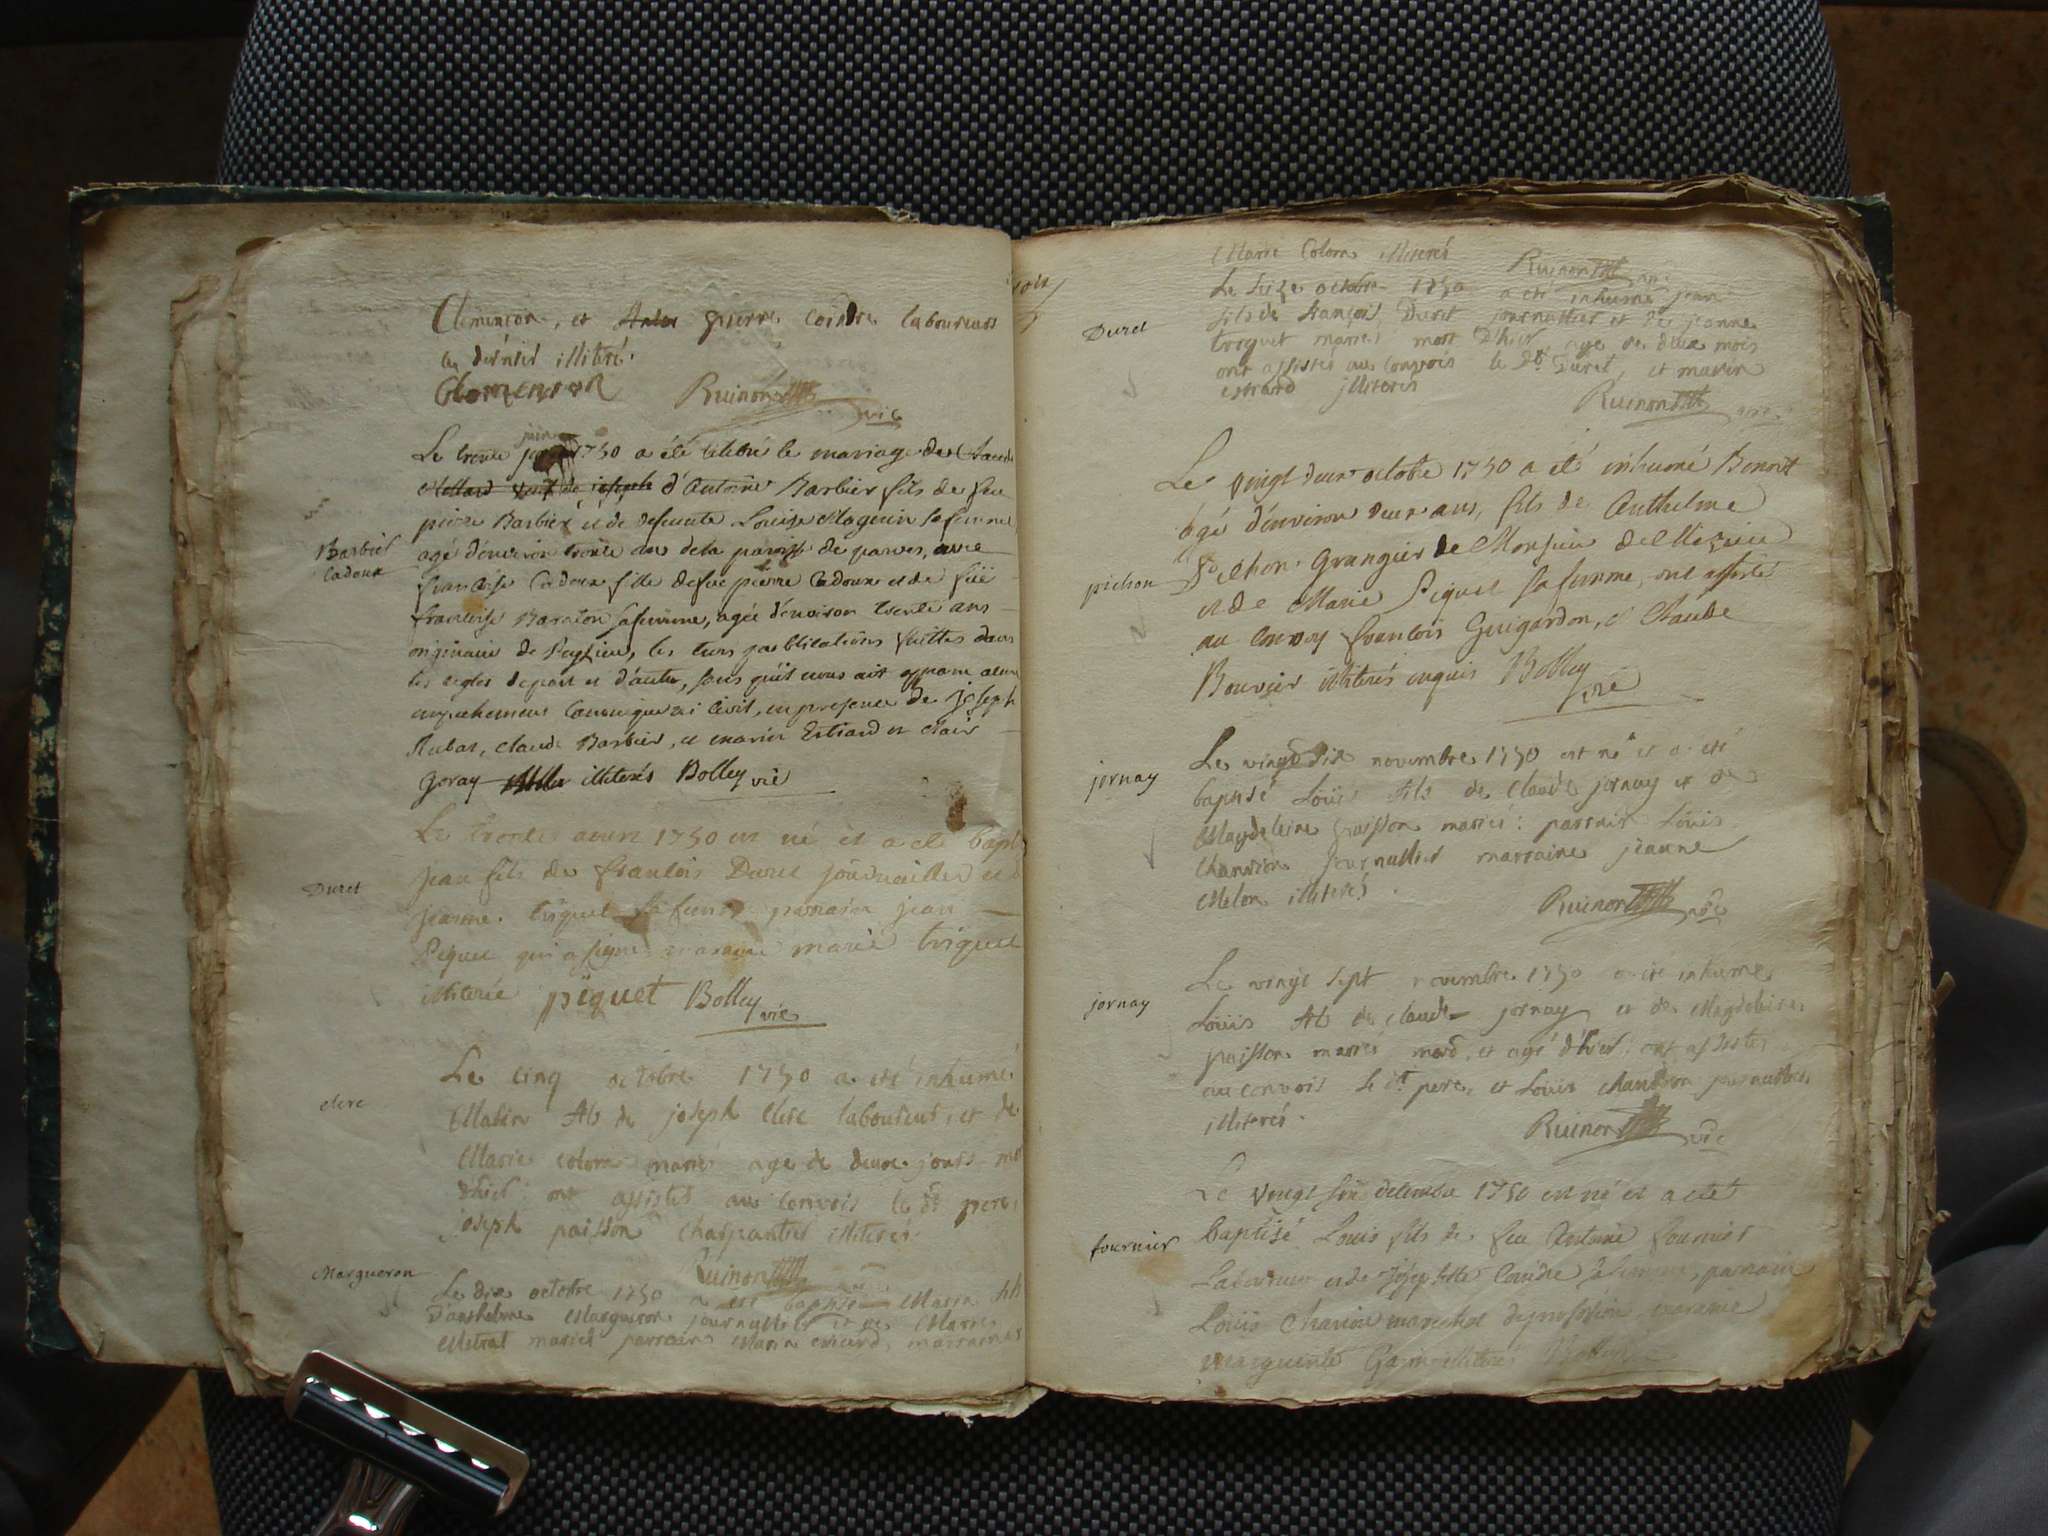 Clemencon, et pierre Coindre laboureurs
les derniers illiteré.
Clemenson Ruinon vic
juin
Le trente 1750 a été célébré le mariage de
d'Antoine Barbier fils de feu
pierre Barbier et de defuncte Louise Magnin sa femme
Barbier
Cadoux
agé d'environ trente ans de la paroisse de parves, avec
francoise Cadoux fille de feu pierre Cadoux et de
francoise Baraton sa femme, agée d'environ trente ans
originaire de Peyzieu, les trois publications faittes dans
les regles de part et d'autre, sans qu'il nous ait apparu aucun
empechement Canonique ni Civil, en presence de joseph
Rubat, claude Barbier, et marin Estrard et clair
Goray illiterés Bolley vic
Duret
Le trente aoust 1750 est né et a eté bapt
jean fils de francois Duret journaillier et d
jeanne triquet sa femme parrain jean
Piquet qui a signé maraine marie triquet
illiterée piquet Bolley vic
clerc
Le cinq octobre 1750 a eté inhumé
Marin fils de joseph Clerc laboureur, et de
Marie colom mariés age de deux jours mo
d'hier ont assistes au convois le dt pere,
joseph paisson charpantier illiterés
Ruinon
Margueron
Le dix octobre 1750 a eté baptisé Marin fils
d'anthelme Margueron journallier et de Marie
Mitral mariés parrain Marin marraine
Marie Colom illiterés Ruinon
Duret
Le seize octobre 1750 a eté inhumé jean
fils de françois Duret journallier et de jeanne
troquet mariés mort D'hier, age de deux mois
ont assistés au convois le dt Duret, et marin
estrard illiterés
Ruinon
Le vingt deux octobre 1750 a été inhumé Benoit
agé d'environ deux ans, fils de Anthelme
pichon
Pichon Grangier de Monsieur de
et de Marie Piquet sa femme, ont assisté
au convoy francois Guigardon, et Claude
Bouvier illiterés enquis Bolley
vic
jornay
Le vingt six novembre 1750 est né et a eté
baptisé Loüis fils de Claude jornay et de
Magdeleine paisson mariés: parrain Loüis
Chanvion journallier marraine jeanne
Melon illiterés
Ruinon vic
jornay
Le vingt sept novembre 1750 a eté inhumé
Loüis fils de claude jornay et de Magdeleine
paisson mariés mord, et agé d'hier: ont assistes
au convois le dt pere, et Louis chanvion journallier
illiterés.
Ruinon vic
fournier
Le vingt decembre 1750 est né et a eté
baptisé Louis fils de feu Antoine fournier
Laboureur et de Josephte Coindre sa femme, parrain
Loüis Charion marechal de profession maraine
marguerite illiterés Bolley